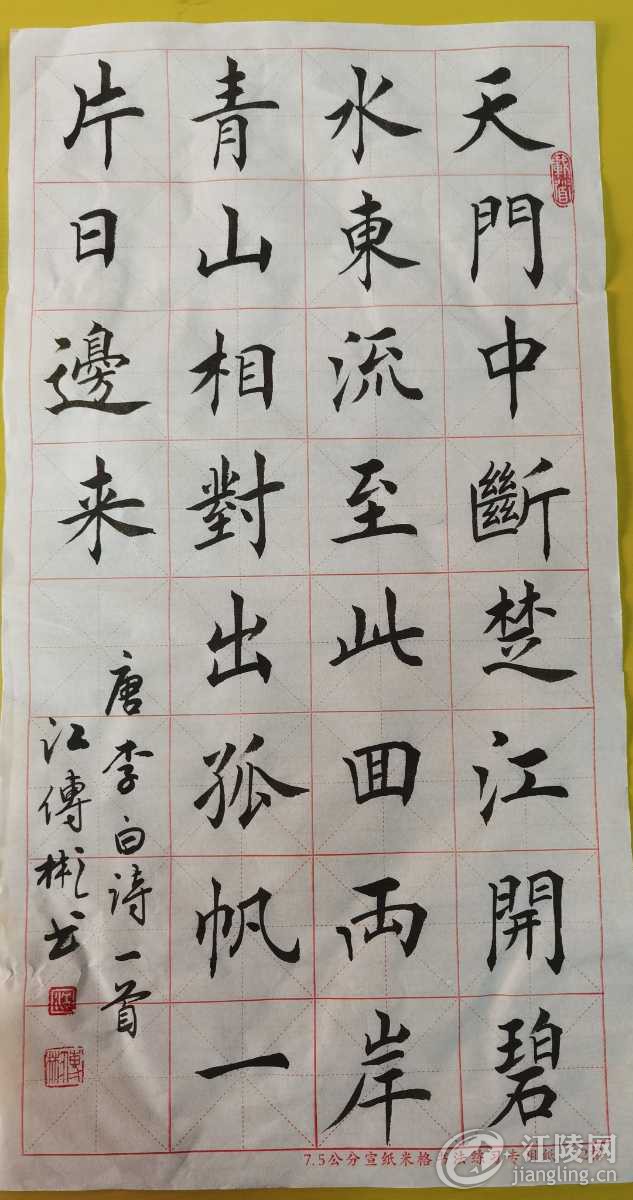 天門中斷楚江開碧
水東流至此回兩岸
青山相對出孤帆一
片日邊来
唐李白詩一首
江傳彬书
7.5公分宣纸米格书法练习专用纸
江陵网
jiangling.cn